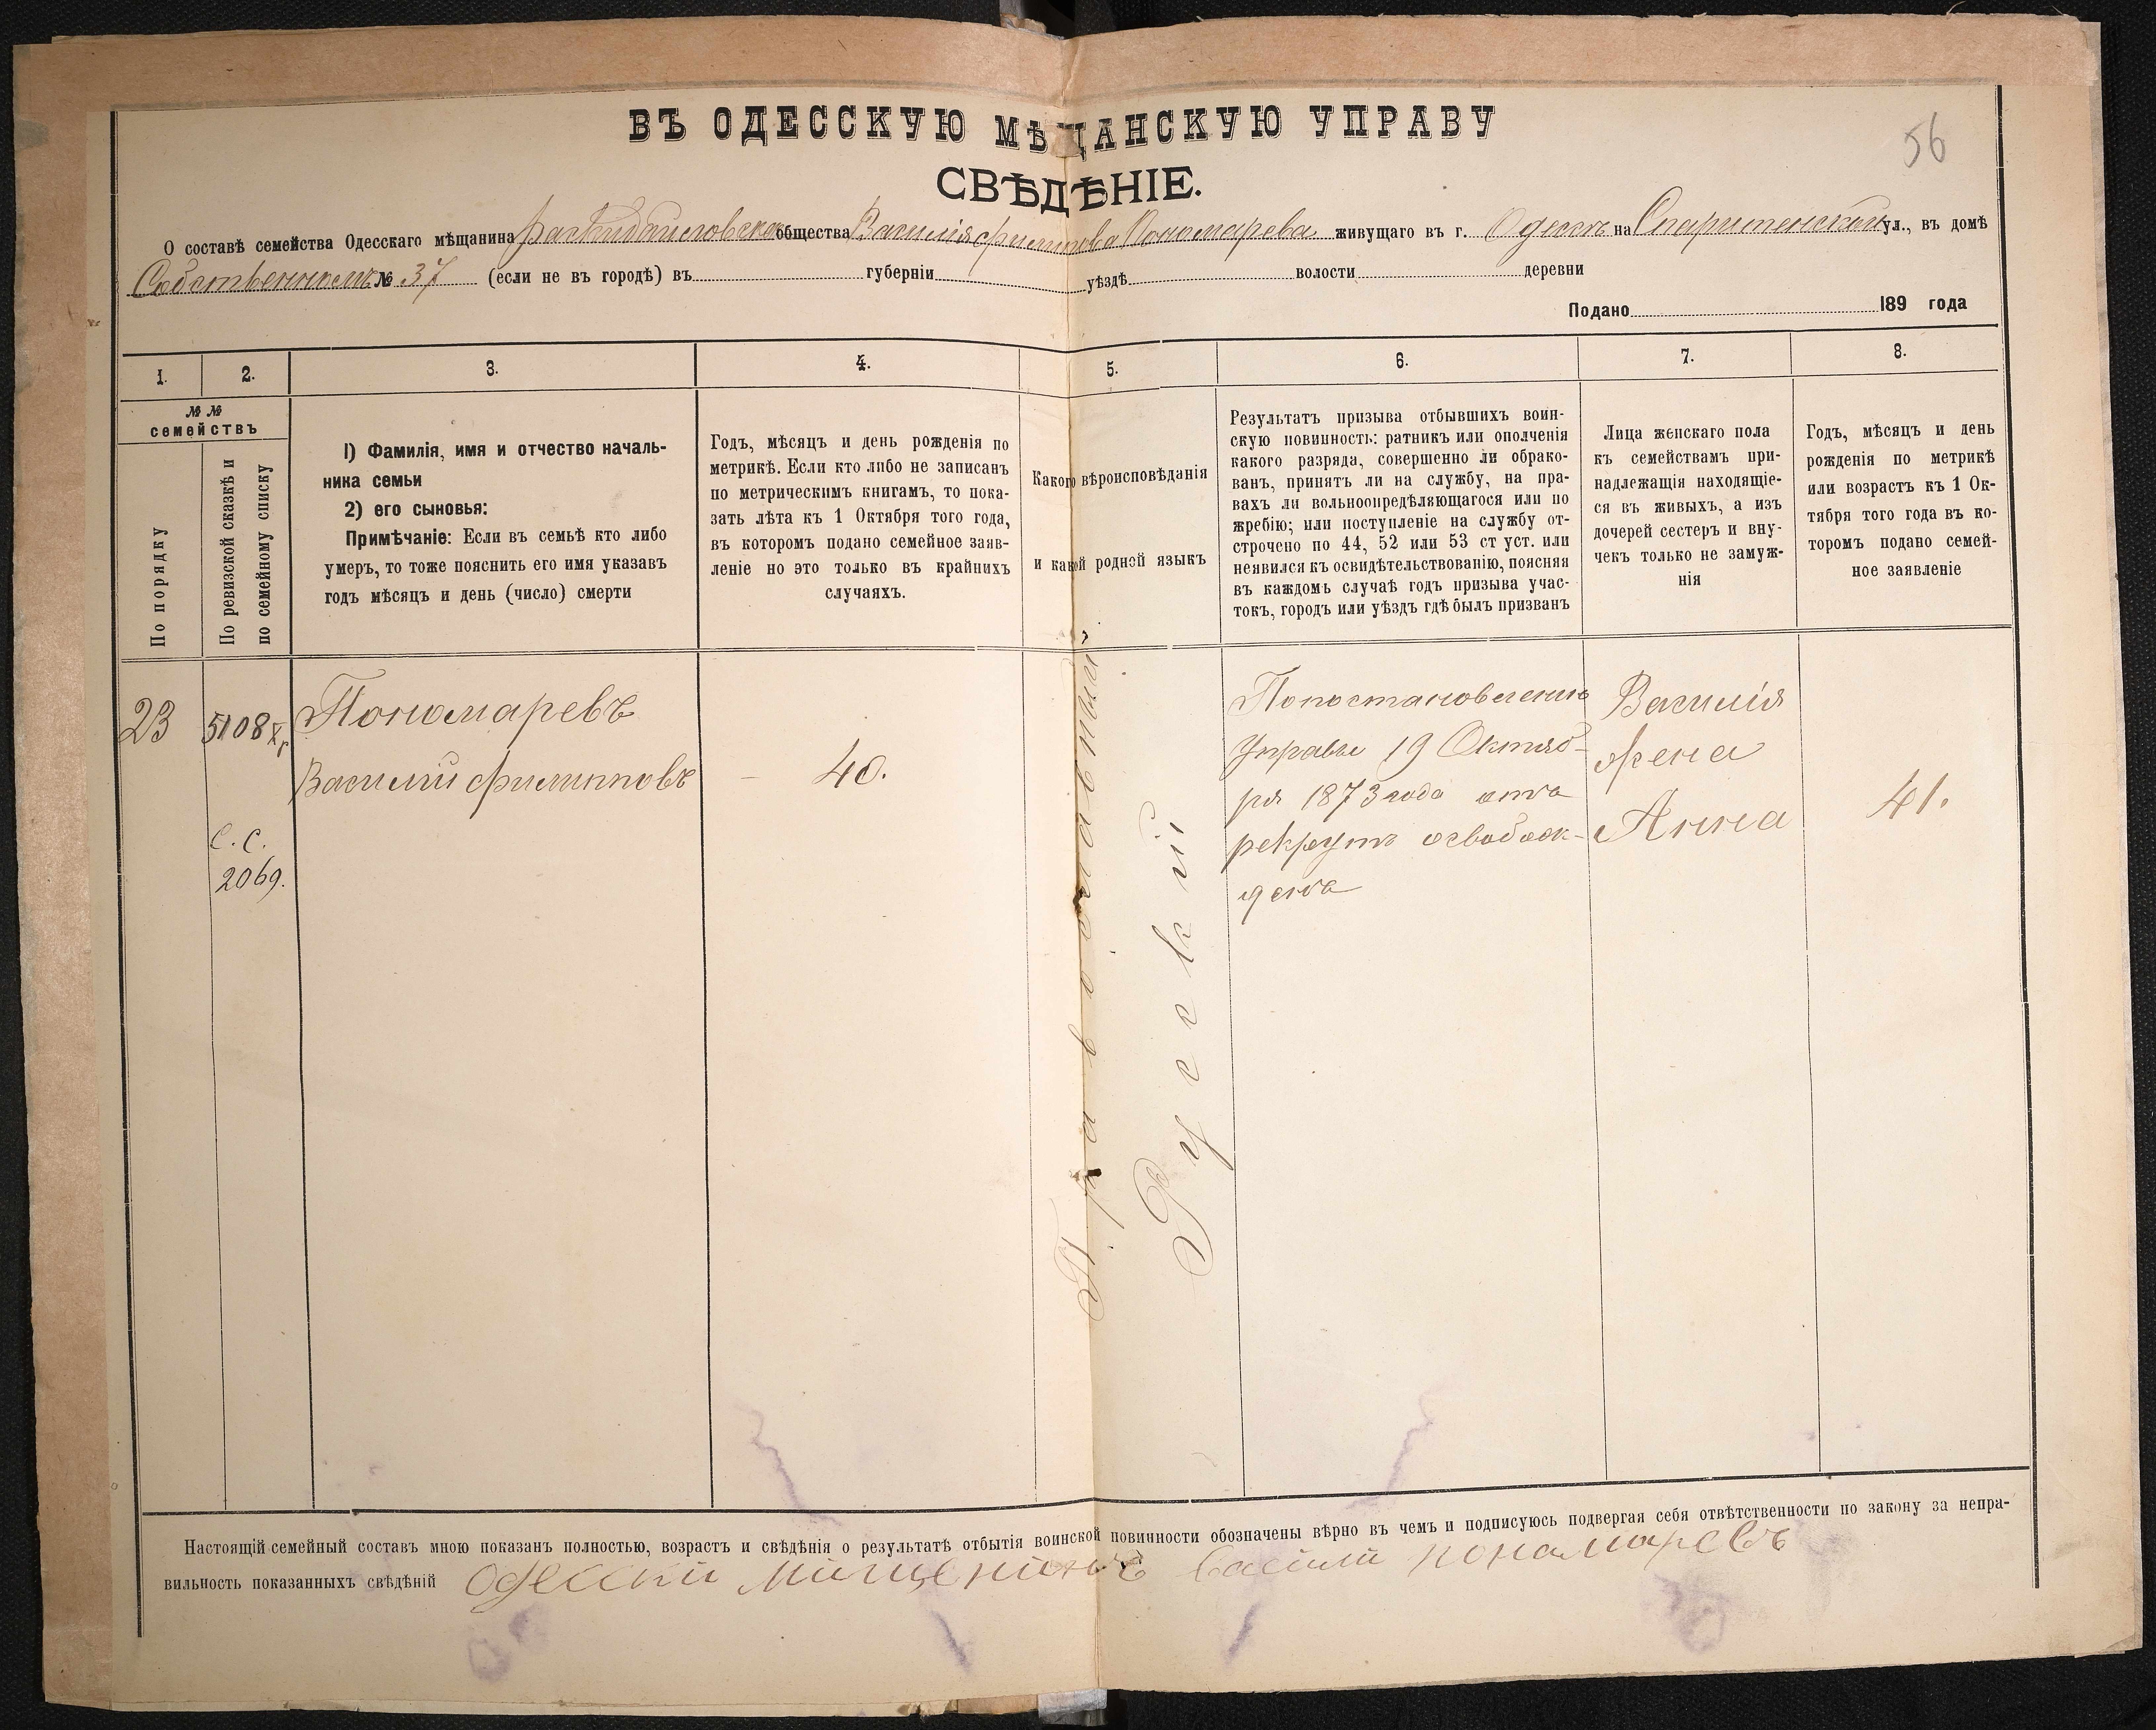 ВЪ ОДЕССКУЮ МѢЩАНСКУЮ УПРАВУ
56
СВѢДѢНІЕ.
О составѣ семейства Одесскаго мѣщанина общества Василія Филипова Пономарева живущаго въ г. Одессѣ на ул., въ домѣ
Собственномъ № 37 (если не въ городѣ) въ губерніи уѣздѣ волости деревни
Подано 189 года
1. 2. 3. 4. 5. 6. 7. 8.
№ №
семействъ
По порядку
По ревизской сказкѣ и
по семейному списку
1) Фамилія, имя и отчество началь-
ника семьи
2) его сыновья:
Примѣчаніе: Если въ семьѣ кто либо
умеръ, то тоже пояснить его имя указавъ
годъ мѣсяцъ и день (число) смерти
Годъ, мѣсяцъ и день рожденія по
метрикѣ. Если кто либо не записанъ
по метрическимъ книгамъ, то пока-
зать лѣта къ 1 Октября того года,
въ которомъ подано семейное заяв-
леніе но это только въ крайнихъ
случаяхъ.
Какого вѣроисповѣданія
и какой родной языкъ
Результатъ призыва отбывшихъ воин-
скую повинность: ратникъ или ополченія
какого разряда, совершенно ли обрако-
ванъ, принятъ ли на службу, на пра-
вахъ ли вольноопредѣляющагося или по
жребію; или поступленіе на службу от-
строчено по 44, 52 или 53 ст уст. или
неявился къ освидѣтельствованію, поясняя
въ каждомъ случаѣ годъ призыва учас-
токъ, городъ или уѣздъ гдѣ былъ призванъ
Лица женскаго пола
къ семействамъ при-
надлежащія находящіе-
ся въ живыхъ, а изъ
дочерей сестеръ и вну-
чекъ только не замуж-
нія
Годъ, мѣсяцъ и день
рожденія по метрикѣ
или возрастъ къ 1 Ок-
тября того года въ ко-
торомъ подано семей-
ное заявленіе
23
5108
С.С.
2069.
Пономаревъ
Василий Филипповъ
40.
Православный
Русский
По постановлению
Управы 19 Октяб-
ря 1873 года отъ
рекрутъ освобож-
денъ
Василія
жена
Анна
41.
Настоящій семейный составъ мною показанъ полностью, возрастъ и свѣдѣнія о результатѣ отбытія воинской повинности обозначены вѣрно въ чемъ и подписуюсь подвергая себя отвѣтственности по закону за непра-
вильность показанныхъ свѣдѣній одески мищенинъ васили понамаревъ